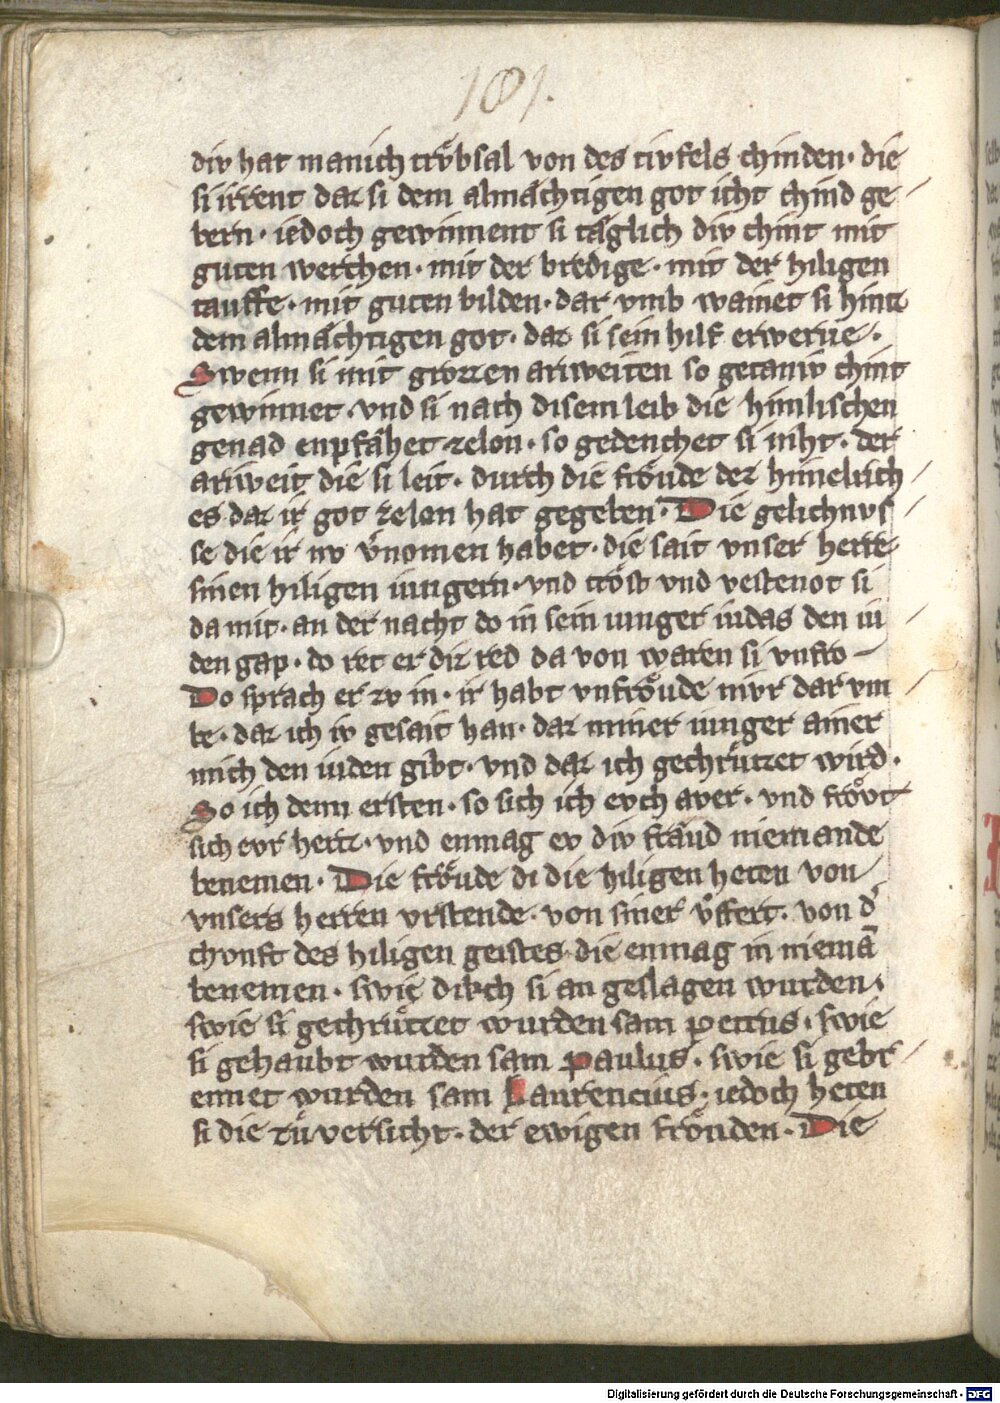 181.
div hat manich trvͤbsal von des tivfels chinden · die
si irrent daz si dem almæchtigen got icht chind ge
bern · iedoch gewinnent si tæglich div chint mit
guten werchen · mit der bredige · mit der hiligen
tauffe · mit guten bilden · dar vmb wainet si hintz
dem almæchtigen got · daz si sein hilf erwerue ·
Swenn si mit grozzen ariweiten so getaniv chint
gewinnet · vnd si nach disem leib die himlischen
genad enpfæhet zelon · so gedenchet si niht · der
ariweit die si leit · durch die froͤude dez himelrich
es daz ir got zelon hat gegeben · Die gelichnvs
se die ir nv v̓nomen habet · die sait vnser herre
sinen hiligen iungern · vnd troͤst vnd vestenot si
da mit · an der nacht do in sein iunger iudas den iu
den gap · do ret er diz red da von waren si vnfro
Do sprach er zv in · ir habt vnfroͤude nivr dar vm
be · daz ich iv gesait han · daz miner iunger ainer
mich den iuden gibt · vnd daz ich gechruͤtzet wird ·
So ich denn ersten · so sich ich evch aver · vnd froͤvt
sich evr hertz · vnd enmag ev div fraͤud niemande
benemen · Die froͤude di die hiligen heten von
vnsers herren vrstende · von siner vͦffert · von d̓
chvnft des hiligen geistes · die enmag in niemā
benemen · swie dikch si an geslagen wurden ·
swie si gechruͤtzet wurden sam petrus · swie
si gehaubt wurden sam paulus · swie si gebr
ennet wurden sam Laurencius · iedoch heten
si die zuͤversicht · der ewigen froͤuden · Die
Digitalisierung gefördert durch die Deutsche Forschungsgemeinschaft - DFG